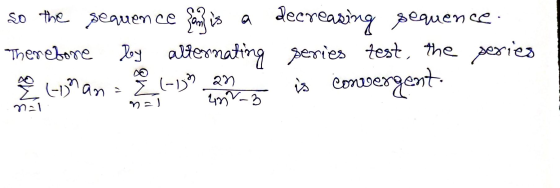 so the sequence {an} is a decreasing sequence.
Therefore by alternating series test, the series
∞∑n=1 (-1)^n an = ∞∑n=1 (-1)^n 2n/(4n^2-3) is convergent.